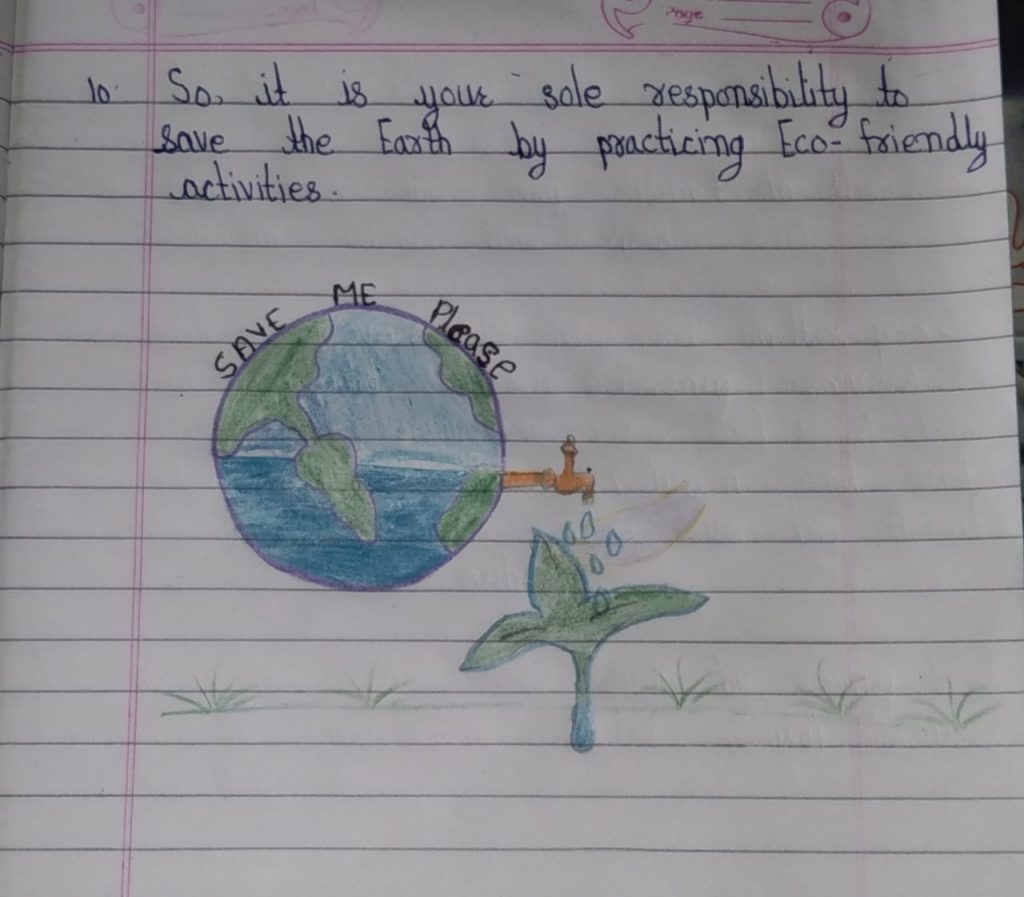 Page
10. So, it is your sole responsibility to
save the Earth by practicing Eco-friendly
activities.
SAVE ME Please